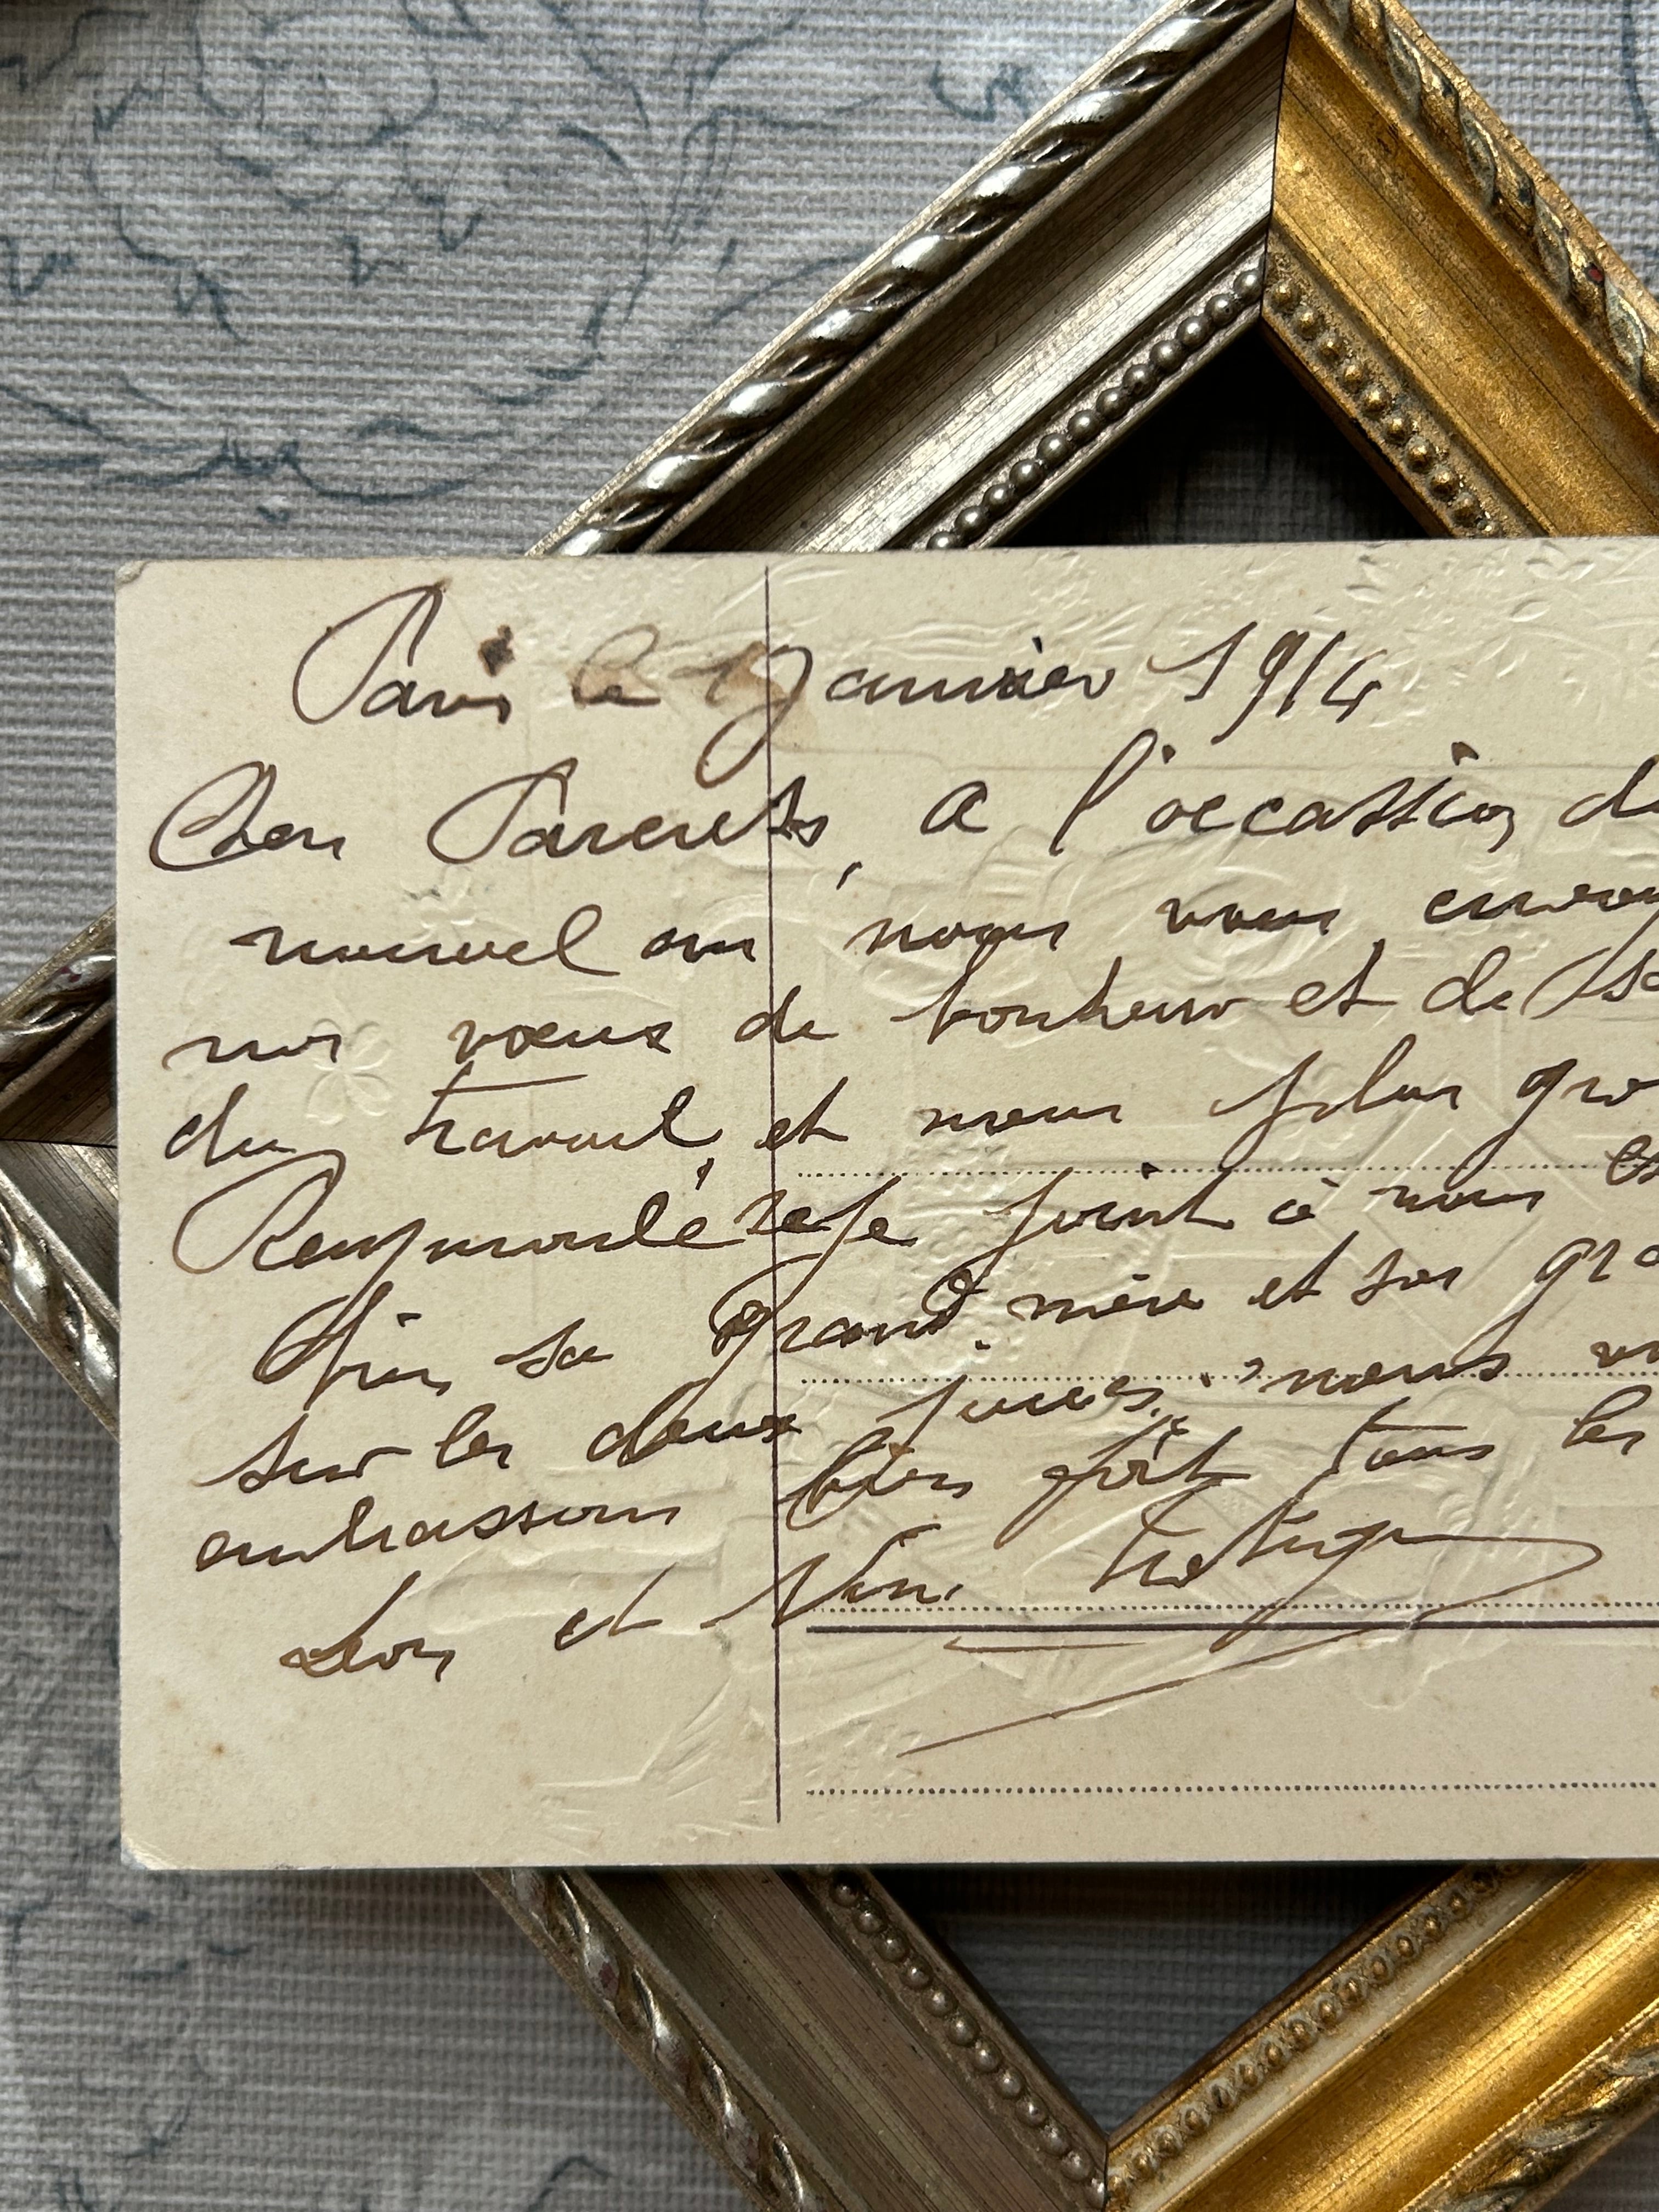 Paris le 1 Janvier 1914
Cher Parents, a l'occassion d
nouvel an nous vous envoy
nos vœux de bonheur et de sa
du travail, et nous plus gro
se joint à nous e
sa Grand. mère et son gra
sur les deux joues, nous v
embrassons bien fort tous les
Léon et